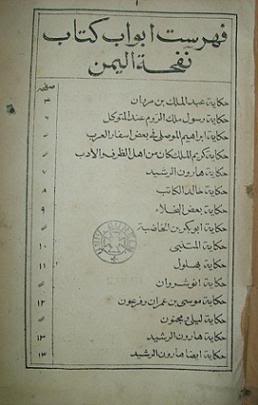 فهرست ابواب كتاب
نفحة اليمن
صفحه
حكاية عبد الملك بن مروان ٣
حكاية رسول ملك الروم عند المتوكل ٤
حكاية ابراهيم الموصلي في بعض اسفار العرب
حكاية كريم الملك كان من اهل الظرف والادب
حكاية هارون الرشيد ٧
حكاية خالد الكاتب ٨
حكاية بعض البخلاء ٩
حكاية ابوبكر بن الخاضبة
حكاية المتنبي ١٠
حكاية بهلول ١١
حكاية انوشروان
حكاية موسى بن عمران وفرعون ١٢
حكاية ليلى ومجنون
حكاية هارون الرشيد ١٣
حكاية ايضا هارون الرشيد ١٣